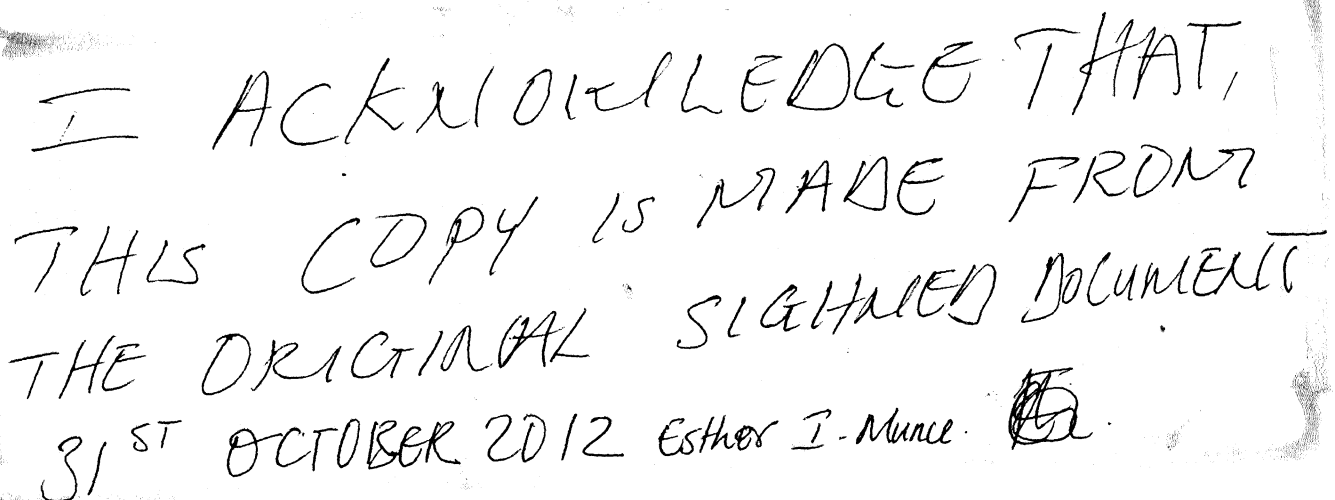 I ACKNOWLEDGE THAT,
THIS COPY IS MADE FROM
THE ORIGINAL SIGHNED DOCUMENT
31ST OCTOBER 2012 Esther I. Munce.